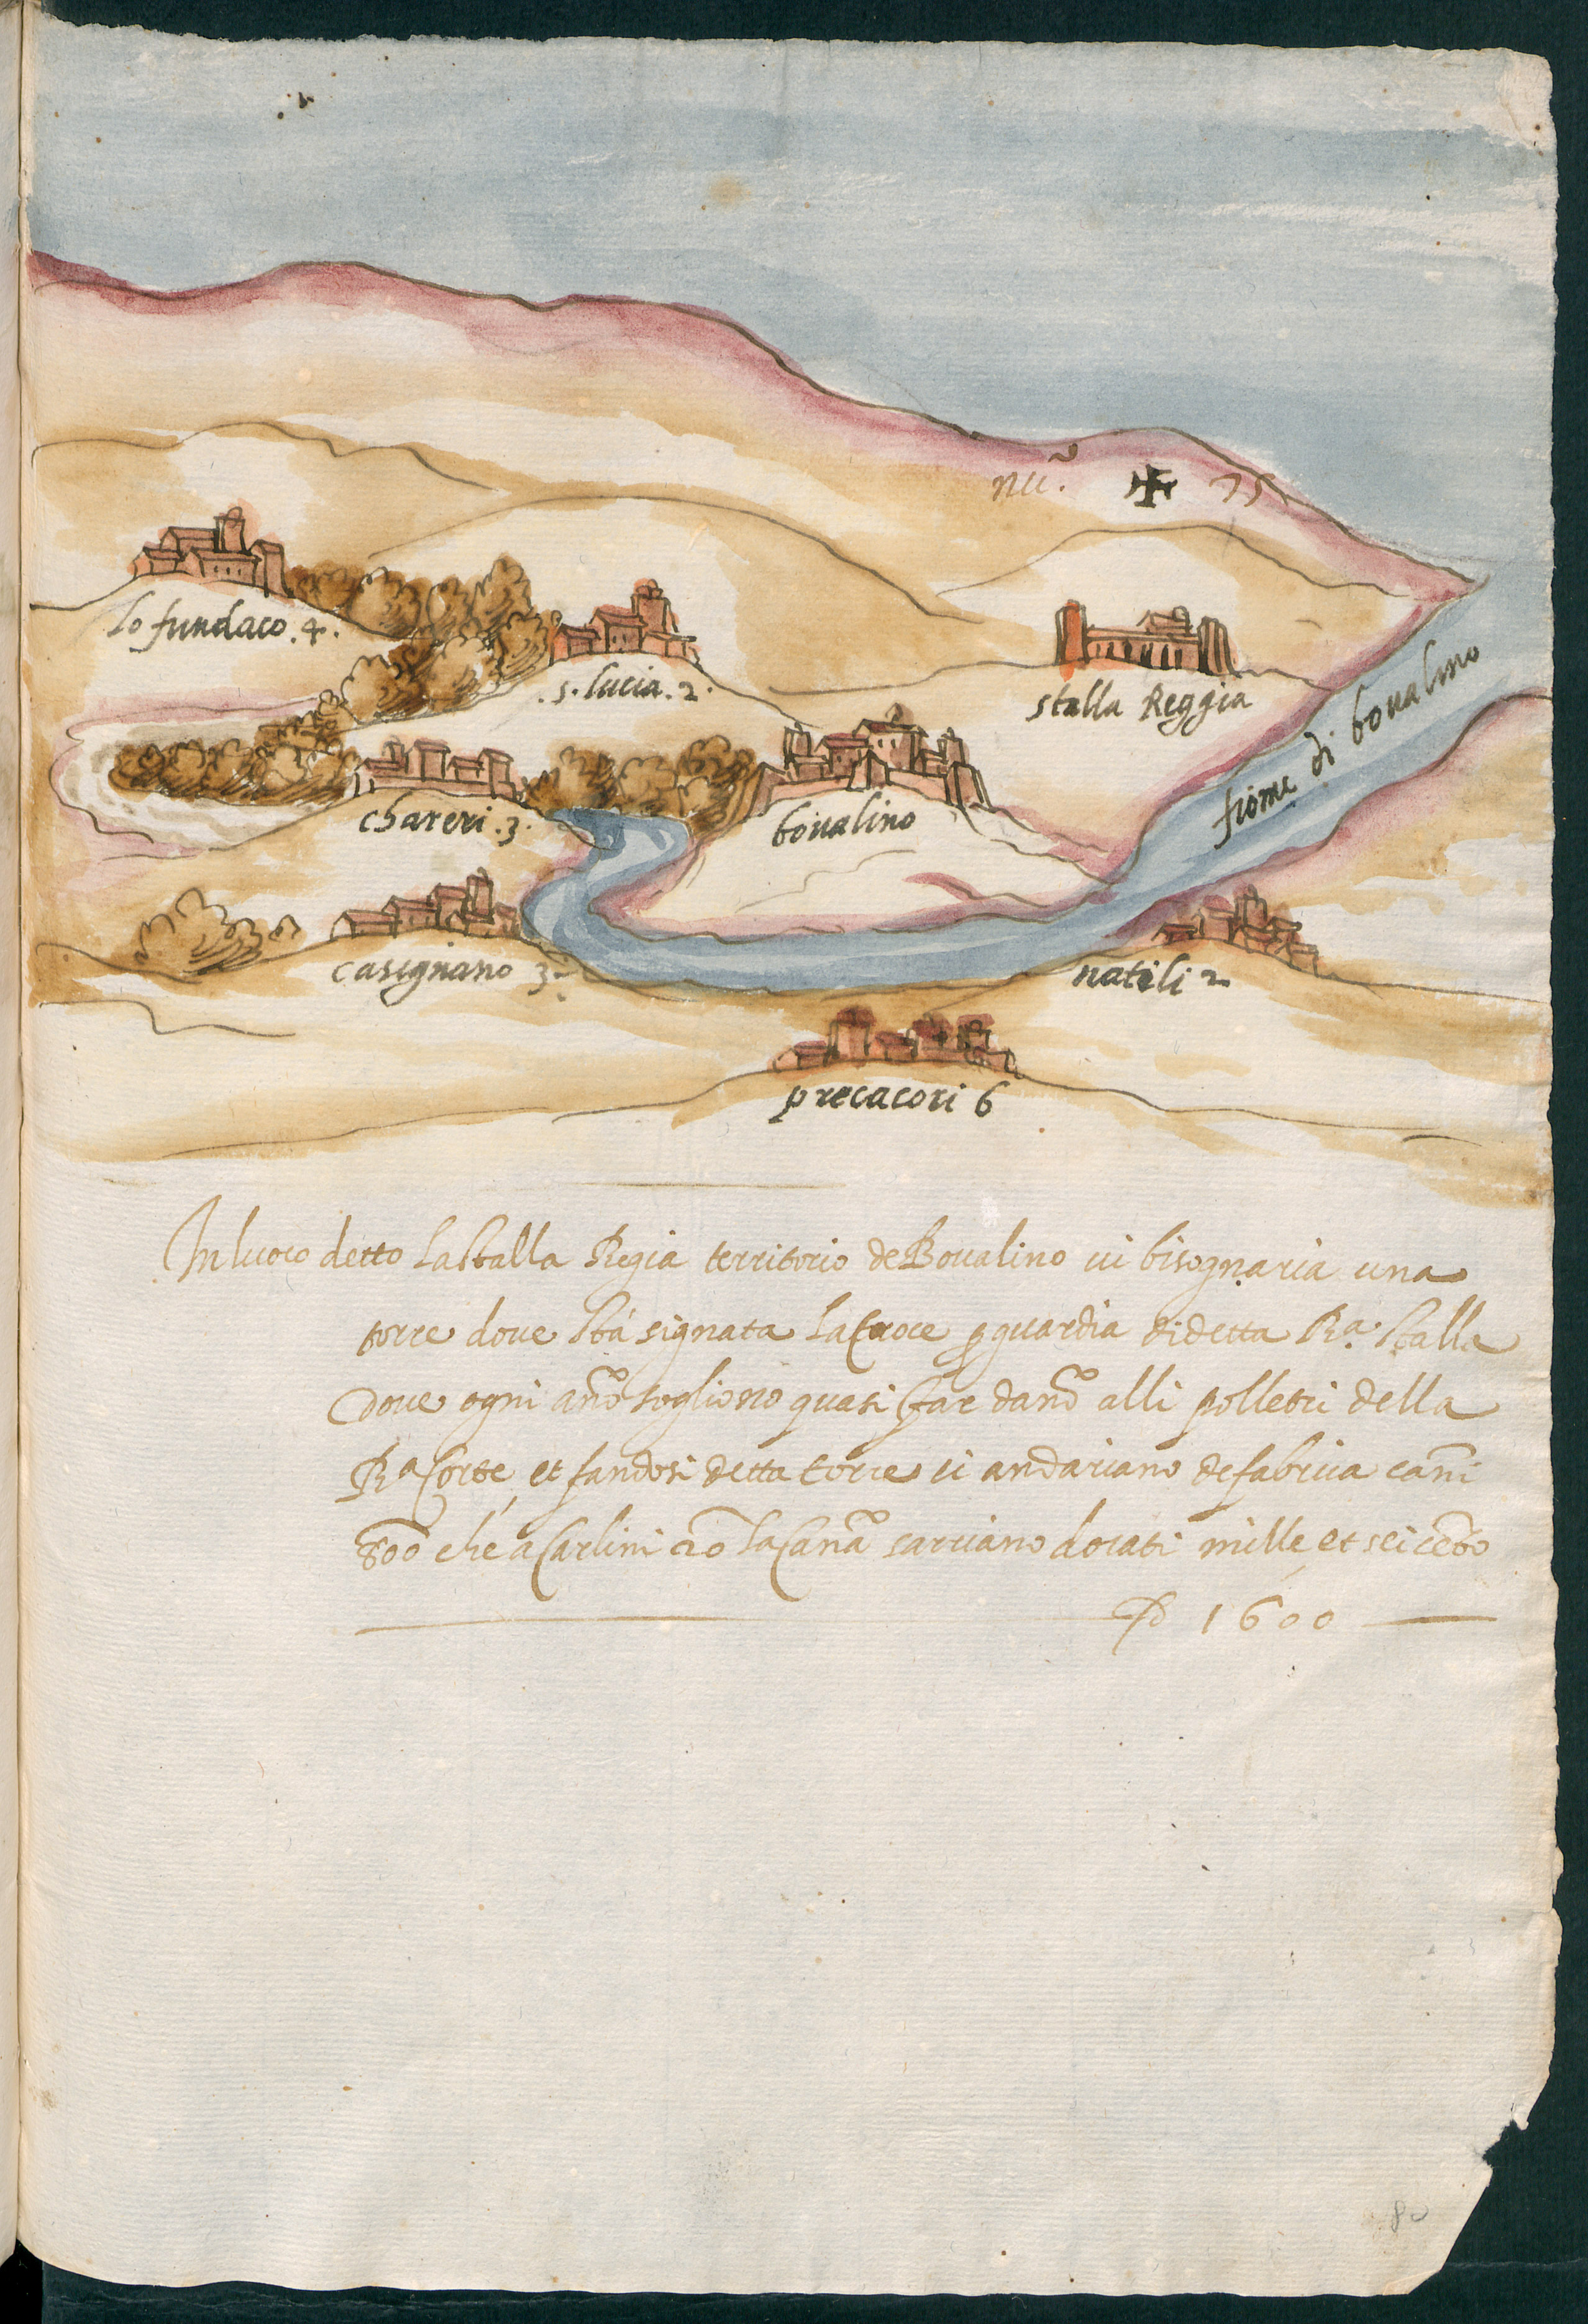 nũ. ✠ 75
lo fundaco .4.
.s. lucia .2.
stalla Reggia
fiome di boualino
chareri .3.
boualino
casignano 3.
natili 2
precacori 6
In luoco detto La Stalla Regia territorio de Boualino ui bisognaria una
torre doue stà signata la Croce p guardia di detta Rª. stalla
doue ogni año sogliono quasi far dano alli polletri della
Rª Corte, et fandosi detta torre ui andariano de fabrica canni
800 che à Carlini 20 la Cana sarriano docati mille et seicẽto
D 1600
80